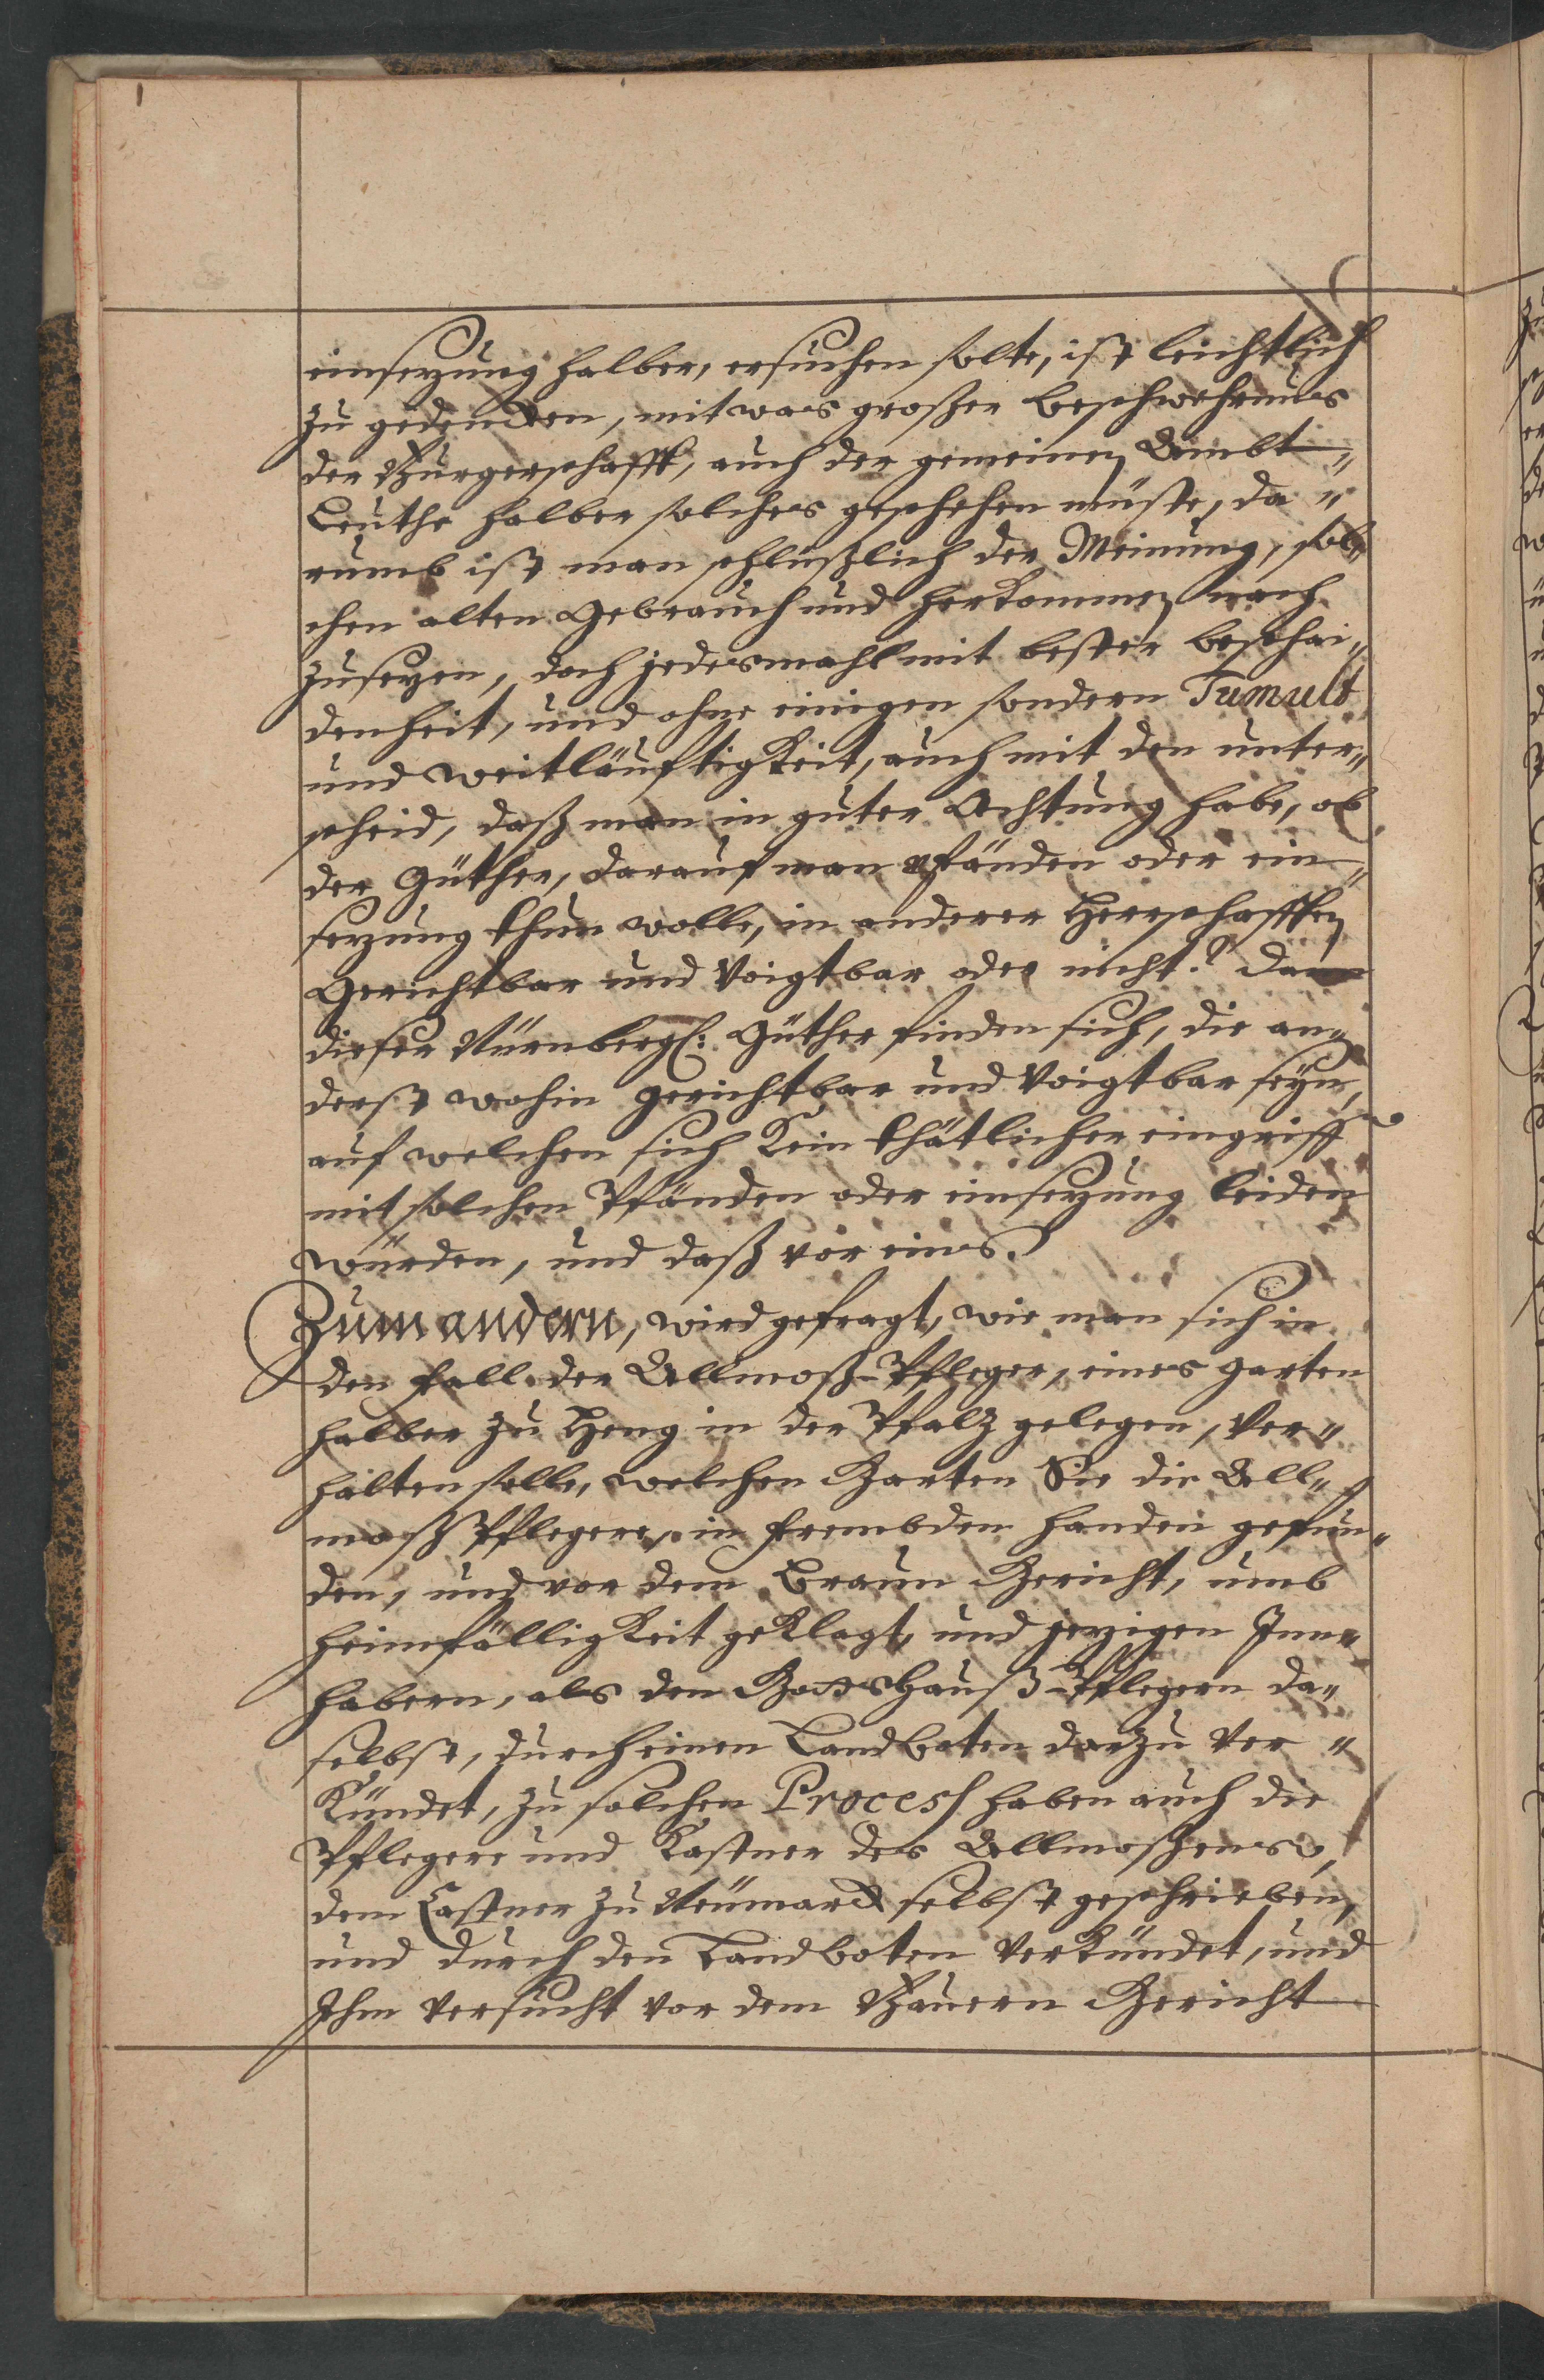 einsezung halber, ersuchen solte, ist leichtlich
zu gedencken, mit was großer beschwehrnus
der Burgerschafft, auch der gemeinen Ambt„
Leuthe halber solches geschehen müste, da„
rumb ist man schlüßlich der Meinung, sol„
chen alten Gebrauch und herkommen nach
zusezen, doch jedesmahl mit bester beschai„
denheit, und ohne einigen sondern Tumult
und weitläufftigkeit, auch mit den unter„
scheid, daß man in guter Achtung habe, ob
der Güther, darauf man pfänden oder ein„
sezung thun wolle, in anderer Herrschafften
Gerichtbar und Voigtbar oder nicht? dann
dieser Nürnbergl: Güther finden sich, die an„
derst wohin gerichtbar und Voigtbar seyn,
auf welchen sich kein thätlicher eingriff
mit solchen Pfänden oder einsezung leiden
würden, und daß vor eines.
Zum andern, wird gefragt, wie man sich in
den fall der Allmoß-Pfleger, eines garten
halber zu Heng in der Pfalz gelegen, Ver„
halten solle, welchen Garten Sie die All„
moß Pflegere, in frembden handen gefun„
den, und vor dem Braun Gericht, umb
heimfälligkeit geklagt, und jezigen Inn„
habern, als den Gottshauß-Pflegern da„
selbst, durch einen Landboten darzu Ver„
kündet, zu solchen Process haben auch die
Pflegere und Kastner des Allmoßens,
dem Castner zu Neumarck selbst geschrieben,
und durch den Landboten Verkündet, und
Ihm versucht vor dem Bauern Gericht